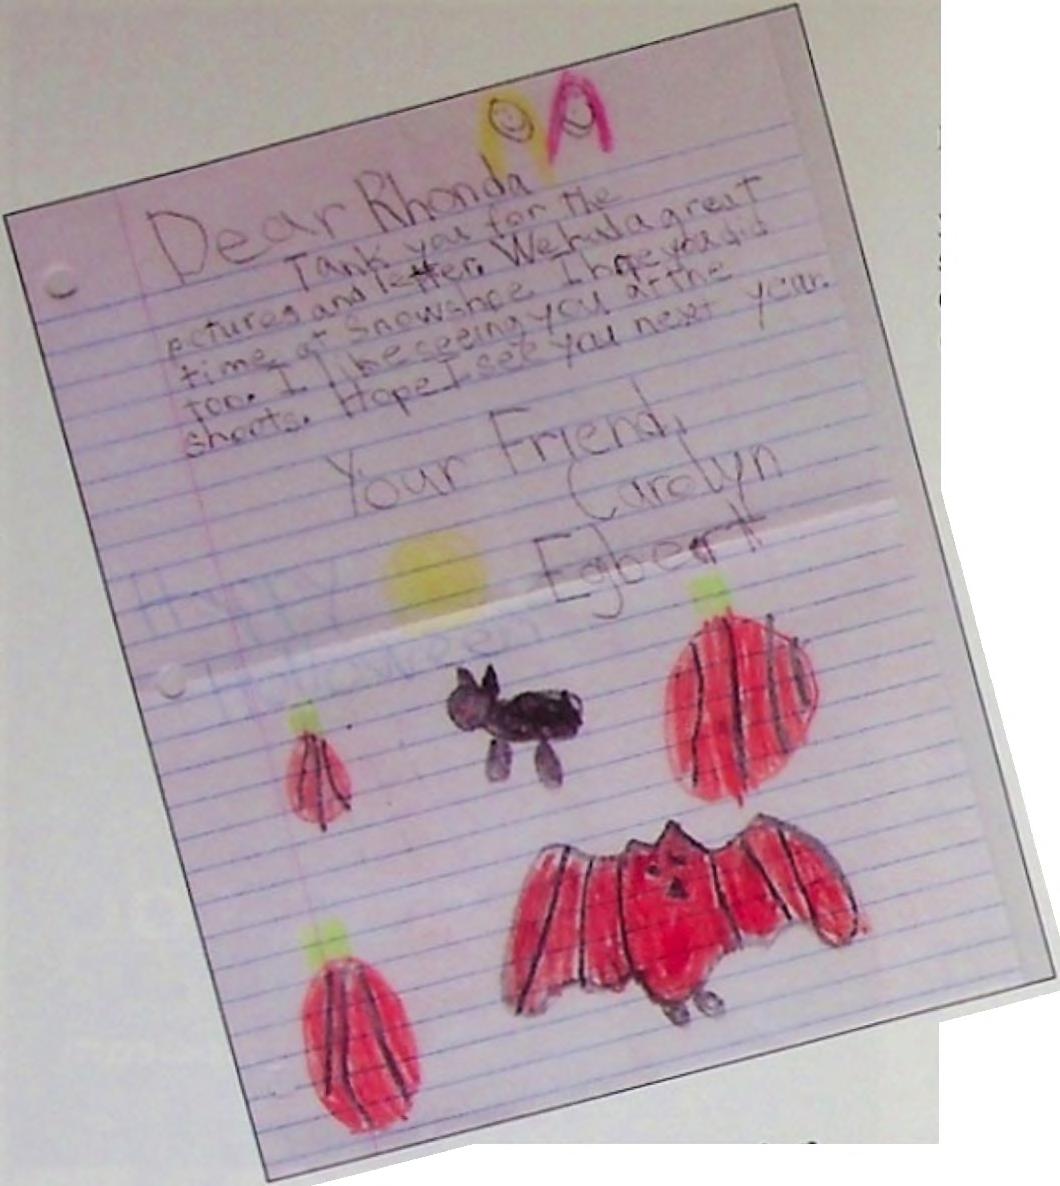 Dear Rhonda
Tank you for the
pctures and letter. We had a great
time at Snowshoe I hope you did
too. I'll be seeing you at the
shoots. Hope I see you next year.
Your Friend,
Carolyn
Egbert
Happy
Halloween